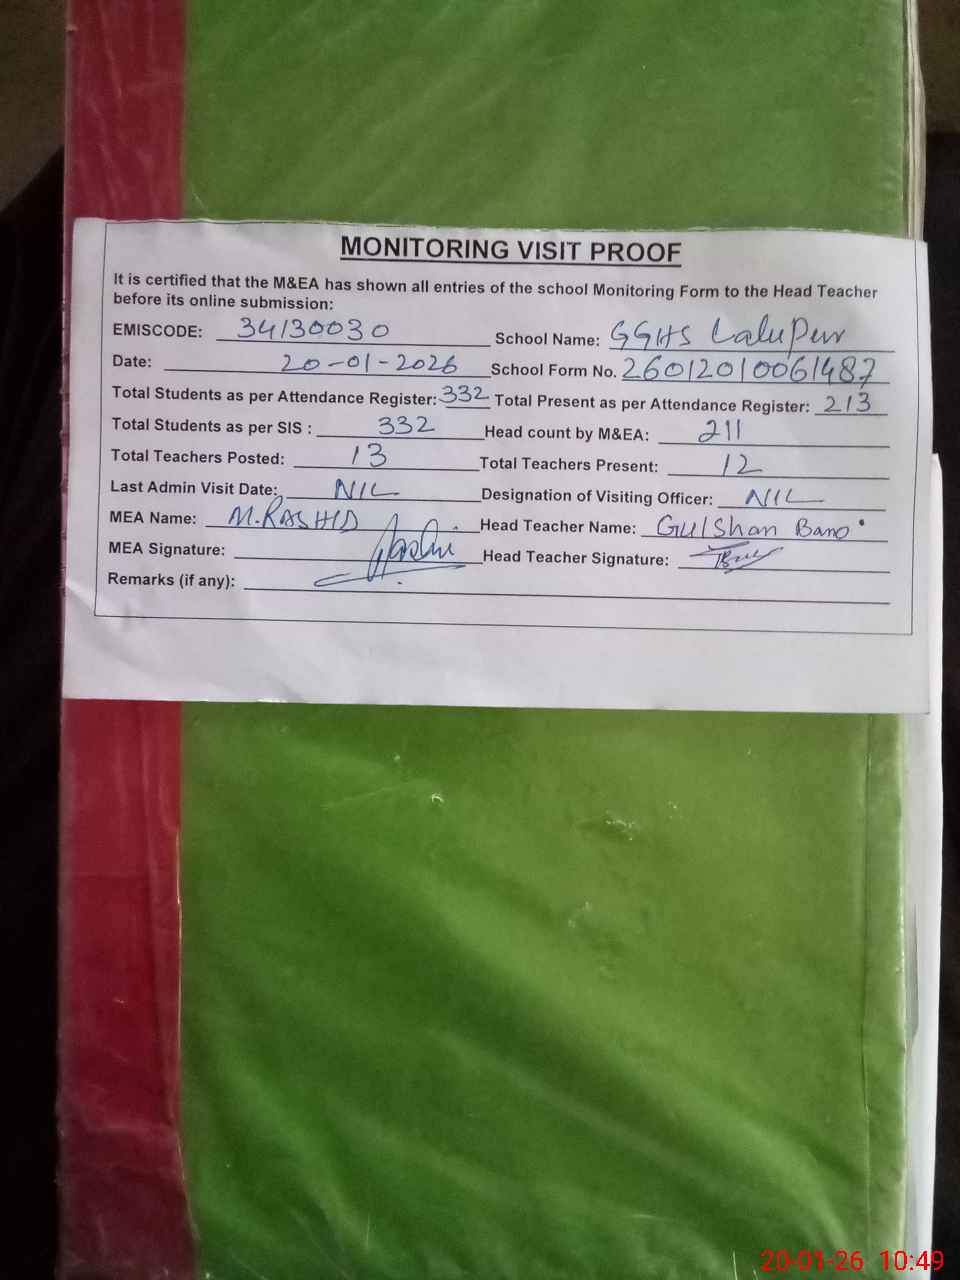 MONITORING VISIT PROOF
It is certified that the M&EA has shown all entries of the school Monitoring Form to the Head Teacher
before its online submission:
EMISCODE: 34130030 School Name: GGHS Lalupur
Date: 20-01-2026 School Form No. 26012010061487
Total Students as per Attendance Register: 332 Total Present as per Attendance Register: 213
Total Students as per SIS : 332 Head count by M&EA: 211
Total Teachers Posted: 13 Total Teachers Present: 12
Last Admin Visit Date: NIL Designation of Visiting Officer: NIL
MEA Name: M.RASHID Head Teacher Name: Gulshan Bano
MEA Signature: Head Teacher Signature:
Remarks (if any):
20-01-26 10:49